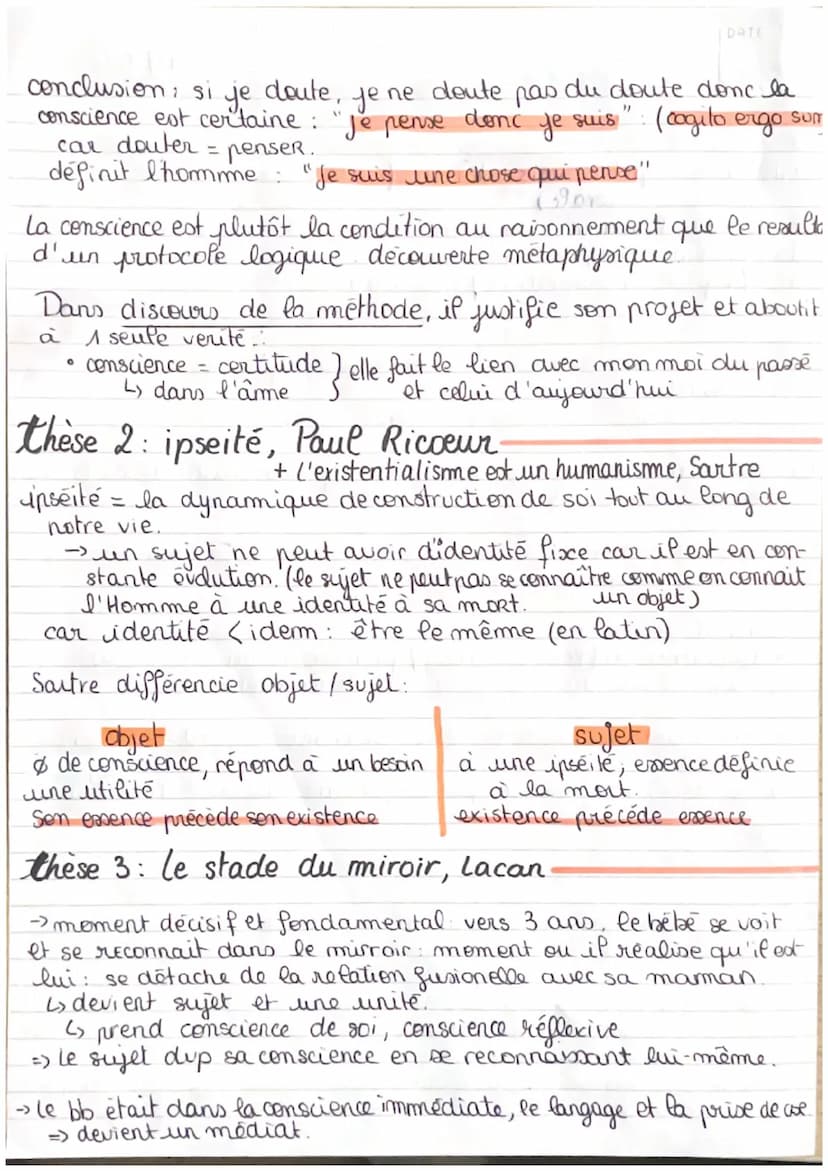 DATE
conclusion : si je doute, je ne doute pas du doute donc la
conscience est certaine : "je pense donc je suis" : (cogito ergo sum
car douter = penser.
définit l'homme : "je suis une chose qui pense"
La conscience est plutôt la condition au raisonnement que le resulta
d'un protocole logique découverte métaphysique.
Dans discours de la méthode, il justifie son projet et aboutit
à 1 seule verité :
• conscience = certitude } elle fait le lien avec mon moi du passé
↳ dans l'âme } et celui d'aujourd'hui
thèse 2 : ipseité, Paul Ricoeur
+ L'existentialisme est un humanisme, Sartre
ipséité = la dynamique de construction de soi tout au long de
notre vie.
→ un sujet ne peut avoir d'identité fixe car il est en con-
stante évolution. (le sujet ne peut pas se connaître comme on connait
l'Homme à une identité à sa mort. un objet)
car identité < idem : être le même (en latin)
Sartre différencie objet / sujet :
objet
ø de conscience, répond à un besoin
une utilité
Son essence précède son existence
sujet
à une ipséité, essence définie
à la mort.
existence précéde essence
thèse 3 : le stade du miroir, Lacan
→ moment décisif et fondamental vers 3 ans, le bébé se voit
et se reconnait dans le mirroir : moment ou il réalise qu'il est
lui : se détache de la relation fusionelle avec sa maman.
↳ devient sujet et une unité.
↳ prend conscience de soi, conscience réflexive
=> Le sujet dvp sa conscience en se reconnaissant lui-même.
→ Le bb était dans la conscience immédiate, le langage et la prise de cse
=> devient un médiat.